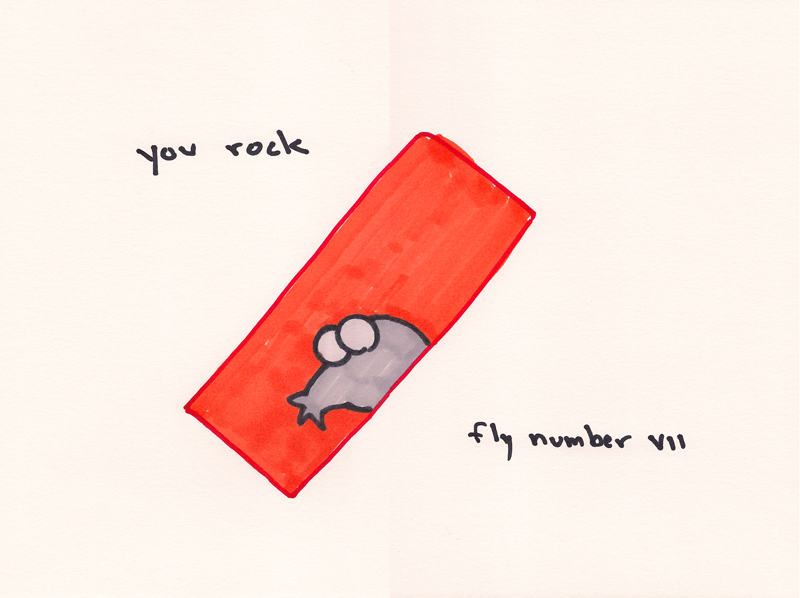 you rock
fly number vii